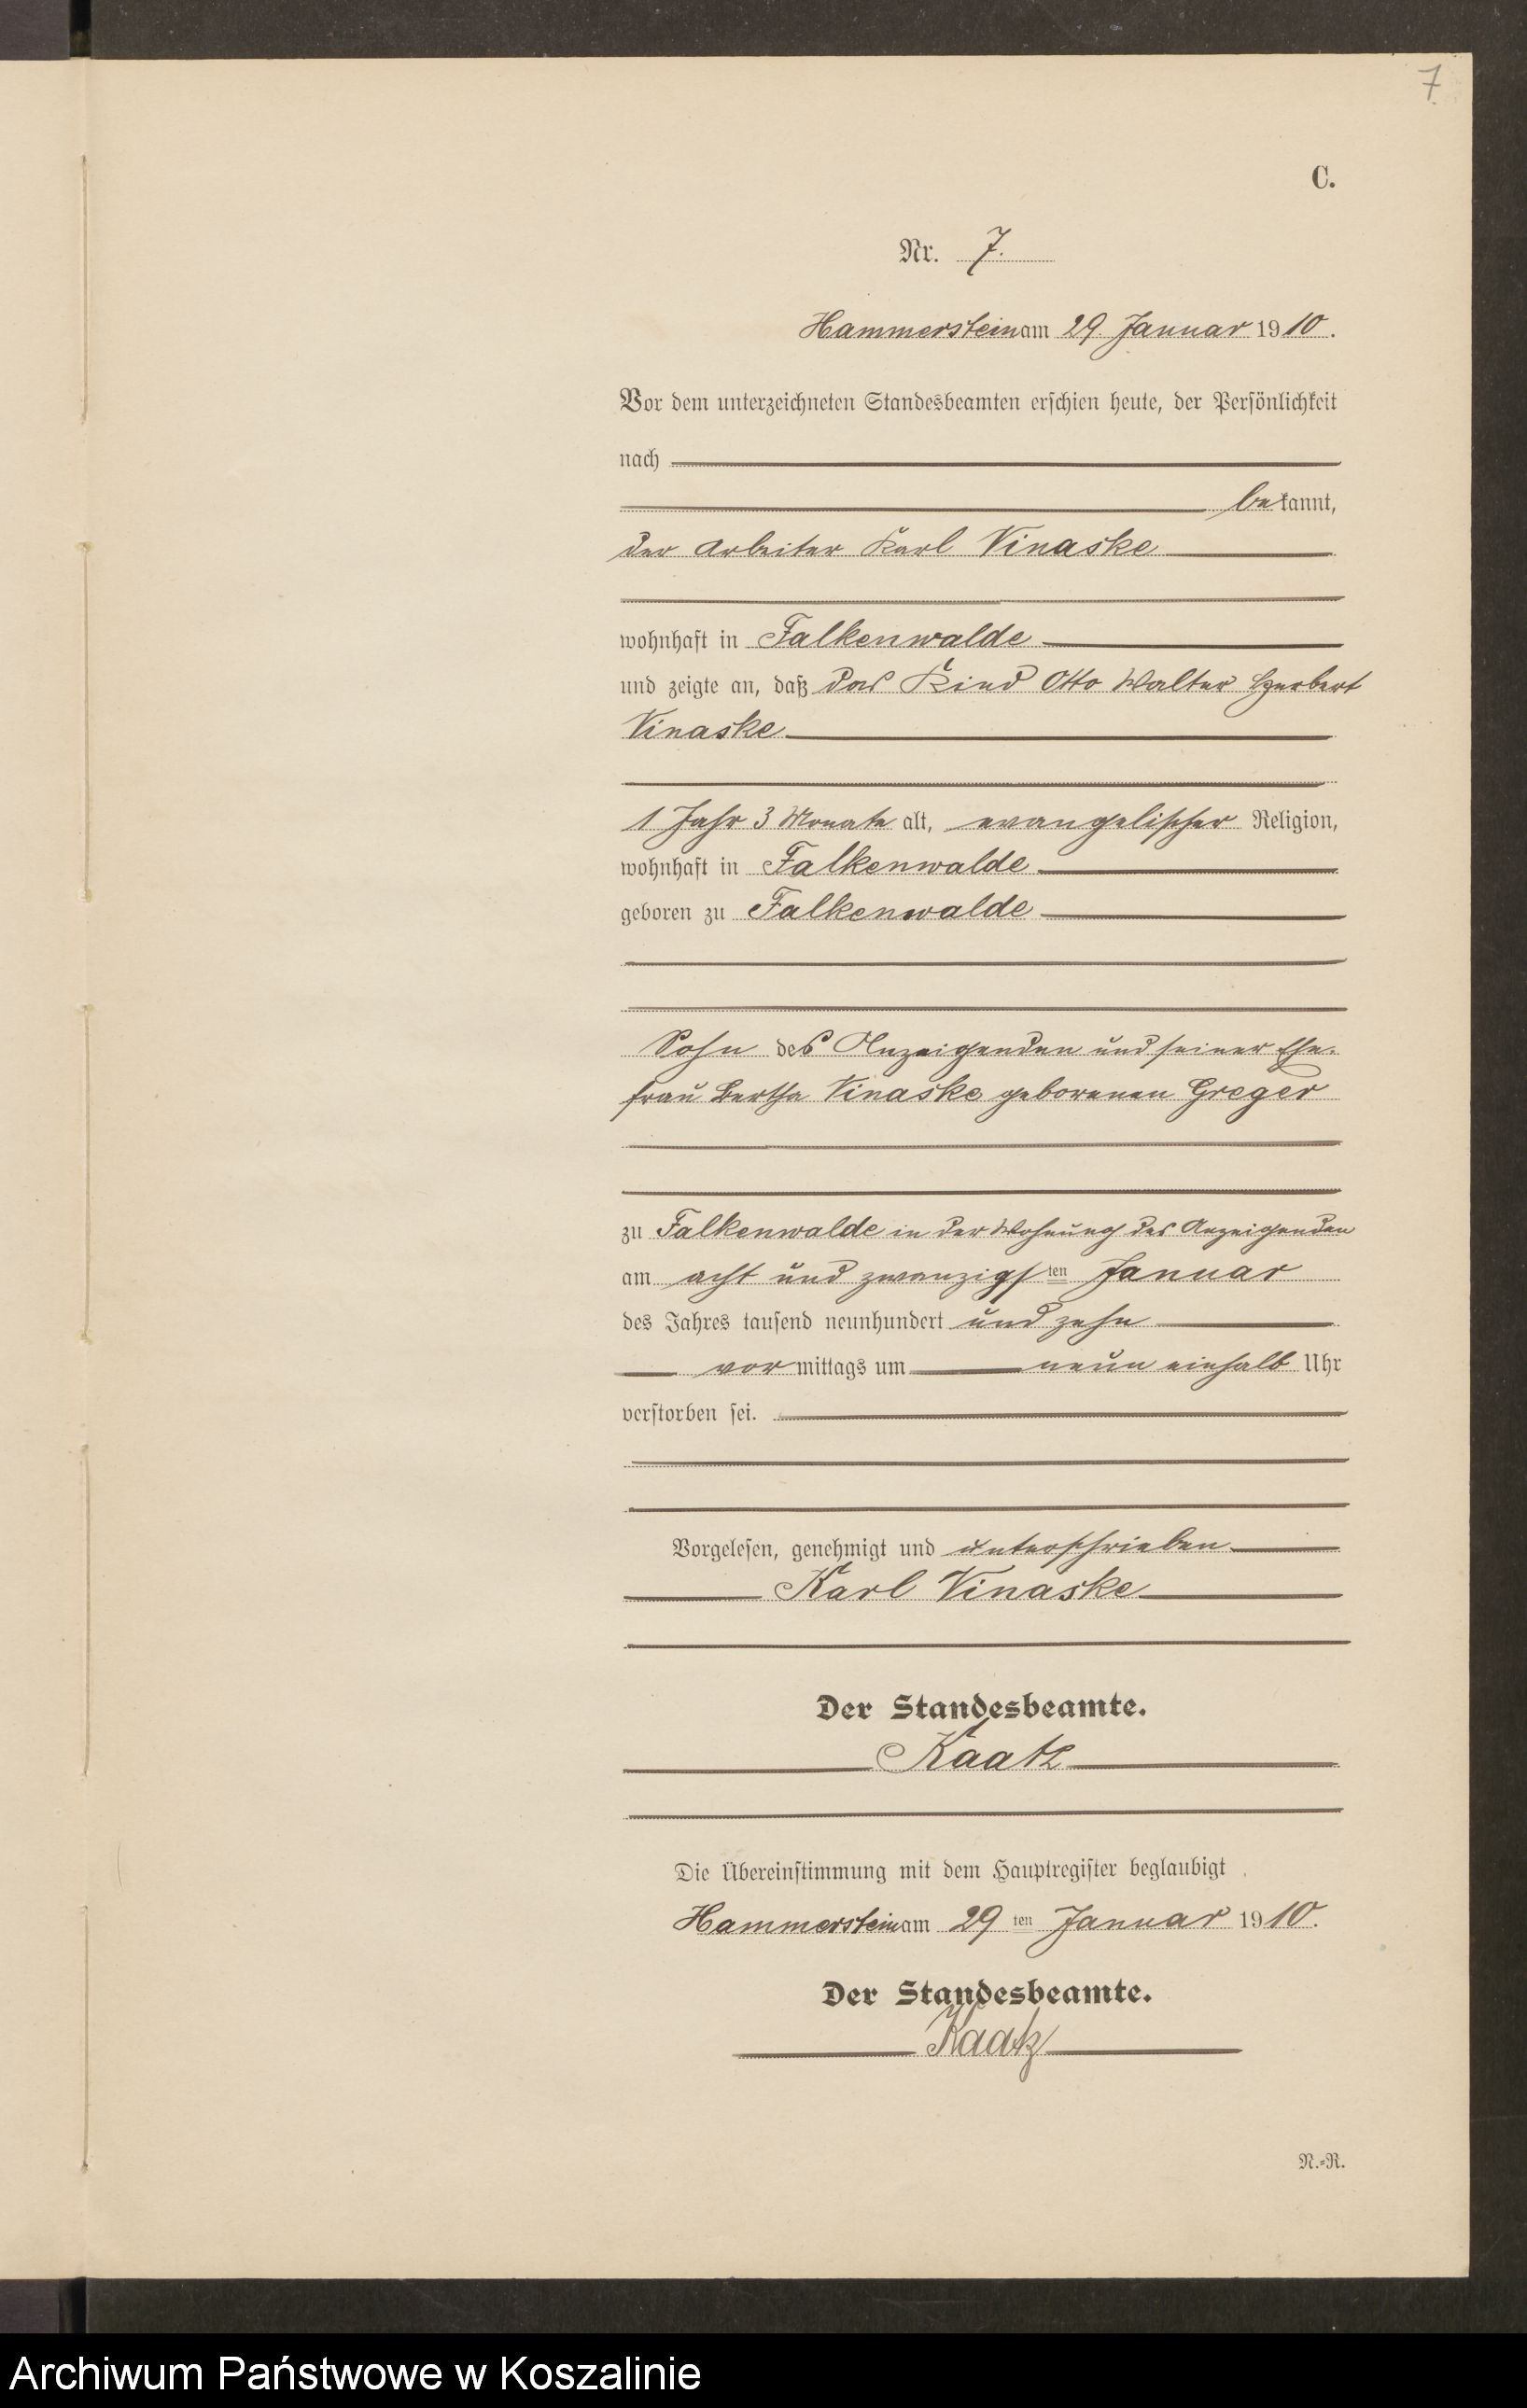 7
C.
Nr. 7.
Hammerstein am 29. Januar 1910.
Vor dem unterzeichneten Standesbeamten erschien heute, der Persönlichkeit
nach
bekannt,
der Arbeiter Karl Vinaske
wohnhaft in Falkenwalde
und zeigte an, daß das Kind Otto Walter Herbert
Vinaske
1 Jahr 3 Monate alt, evangelischer Religion,
wohnhaft in Falkenwalde
geboren zu Falkenwalde
Sohn des Anzeigenden und seiner Ehe-
frau Bertha Vinaske geborenen Greger
zu Falkenwalde in der Wohnung des Anzeigenden
am acht und zwanzigsten Januar
des Jahres tausend neunhundert und zehn
vormittags um neun einhalb Uhr
verstorben sei.
Vorgelesen, genehmigt und unterschrieben
Karl Vinaske
Der Standesbeamte.
Kaatz
Die Übereinstimmung mit dem Hauptregister beglaubigt
Hammerstein am 29ten Januar 1910.
Der Standesbeamte.
Kaatz
N.-R.
Archiwum Państwowe w Koszalinie